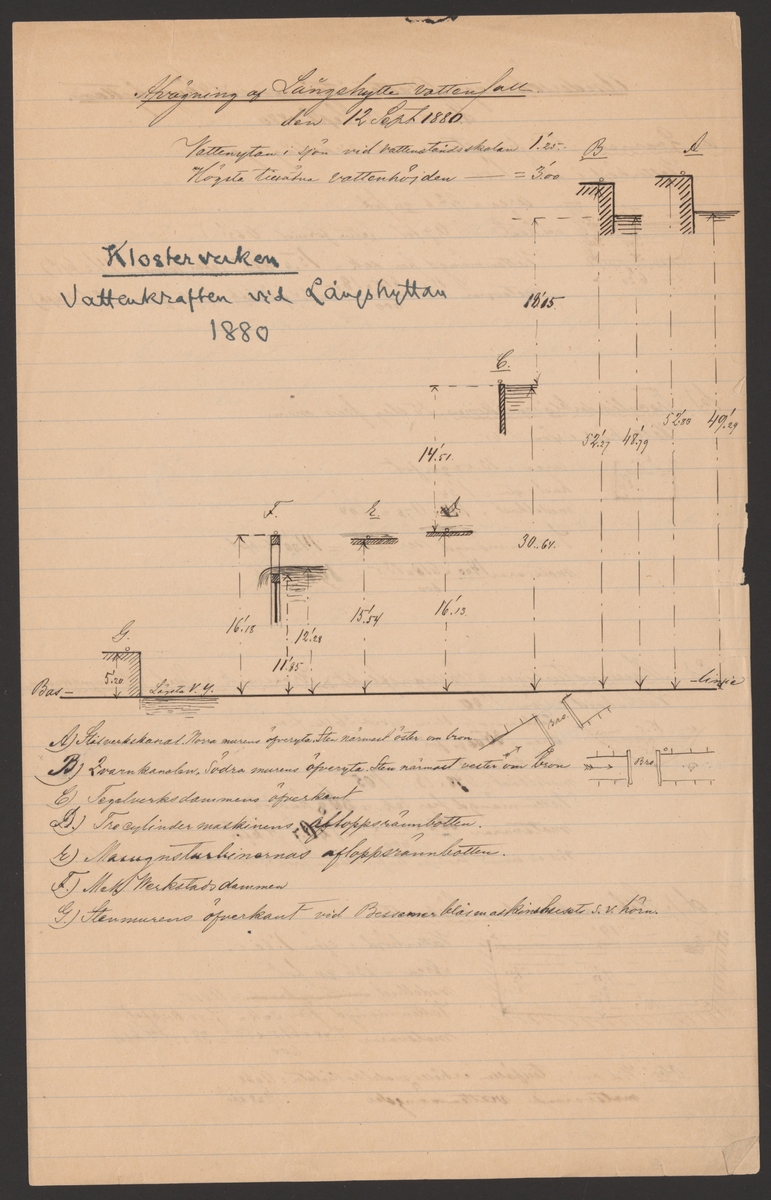 Afvägning af Långshytte vattenfall
den 12 Sept 1880
Vattenytan i sjön vid vattenståndsskalan 1'.25.
Högsta tillåtna vattenhöjden — = 3'.00
B
A
Klosterverken
Vattenkraften vid Långshyttan
1880
18'.15
C.
14'.51
52'.37
48'.79
52'.83
49'.29
F.
E
D
30.64.
16'.13
12'.28
11'.85
15'.54
16'.13
G.
5'.20
Bas —
Lägsta V.Y.
— linie
A) Stålverkskanal. Norra murens öfveryta. Sten närmast öster om bron
Bro
B) Qvarnkanalen. Södra murens öfveryta. Sten närmast vester om bron
Bro
C) Tegelverksdammens öfverkant
D.) Trecylindermaskinens afloppsrännbotten.
E) Masugnsturbinernas afloppsrännbotten.
F.) Mek. Werkstadsdammen
G.) Stenmurens öfverkant vid Bessemerblåsmaskinshusets S.V. hörn.